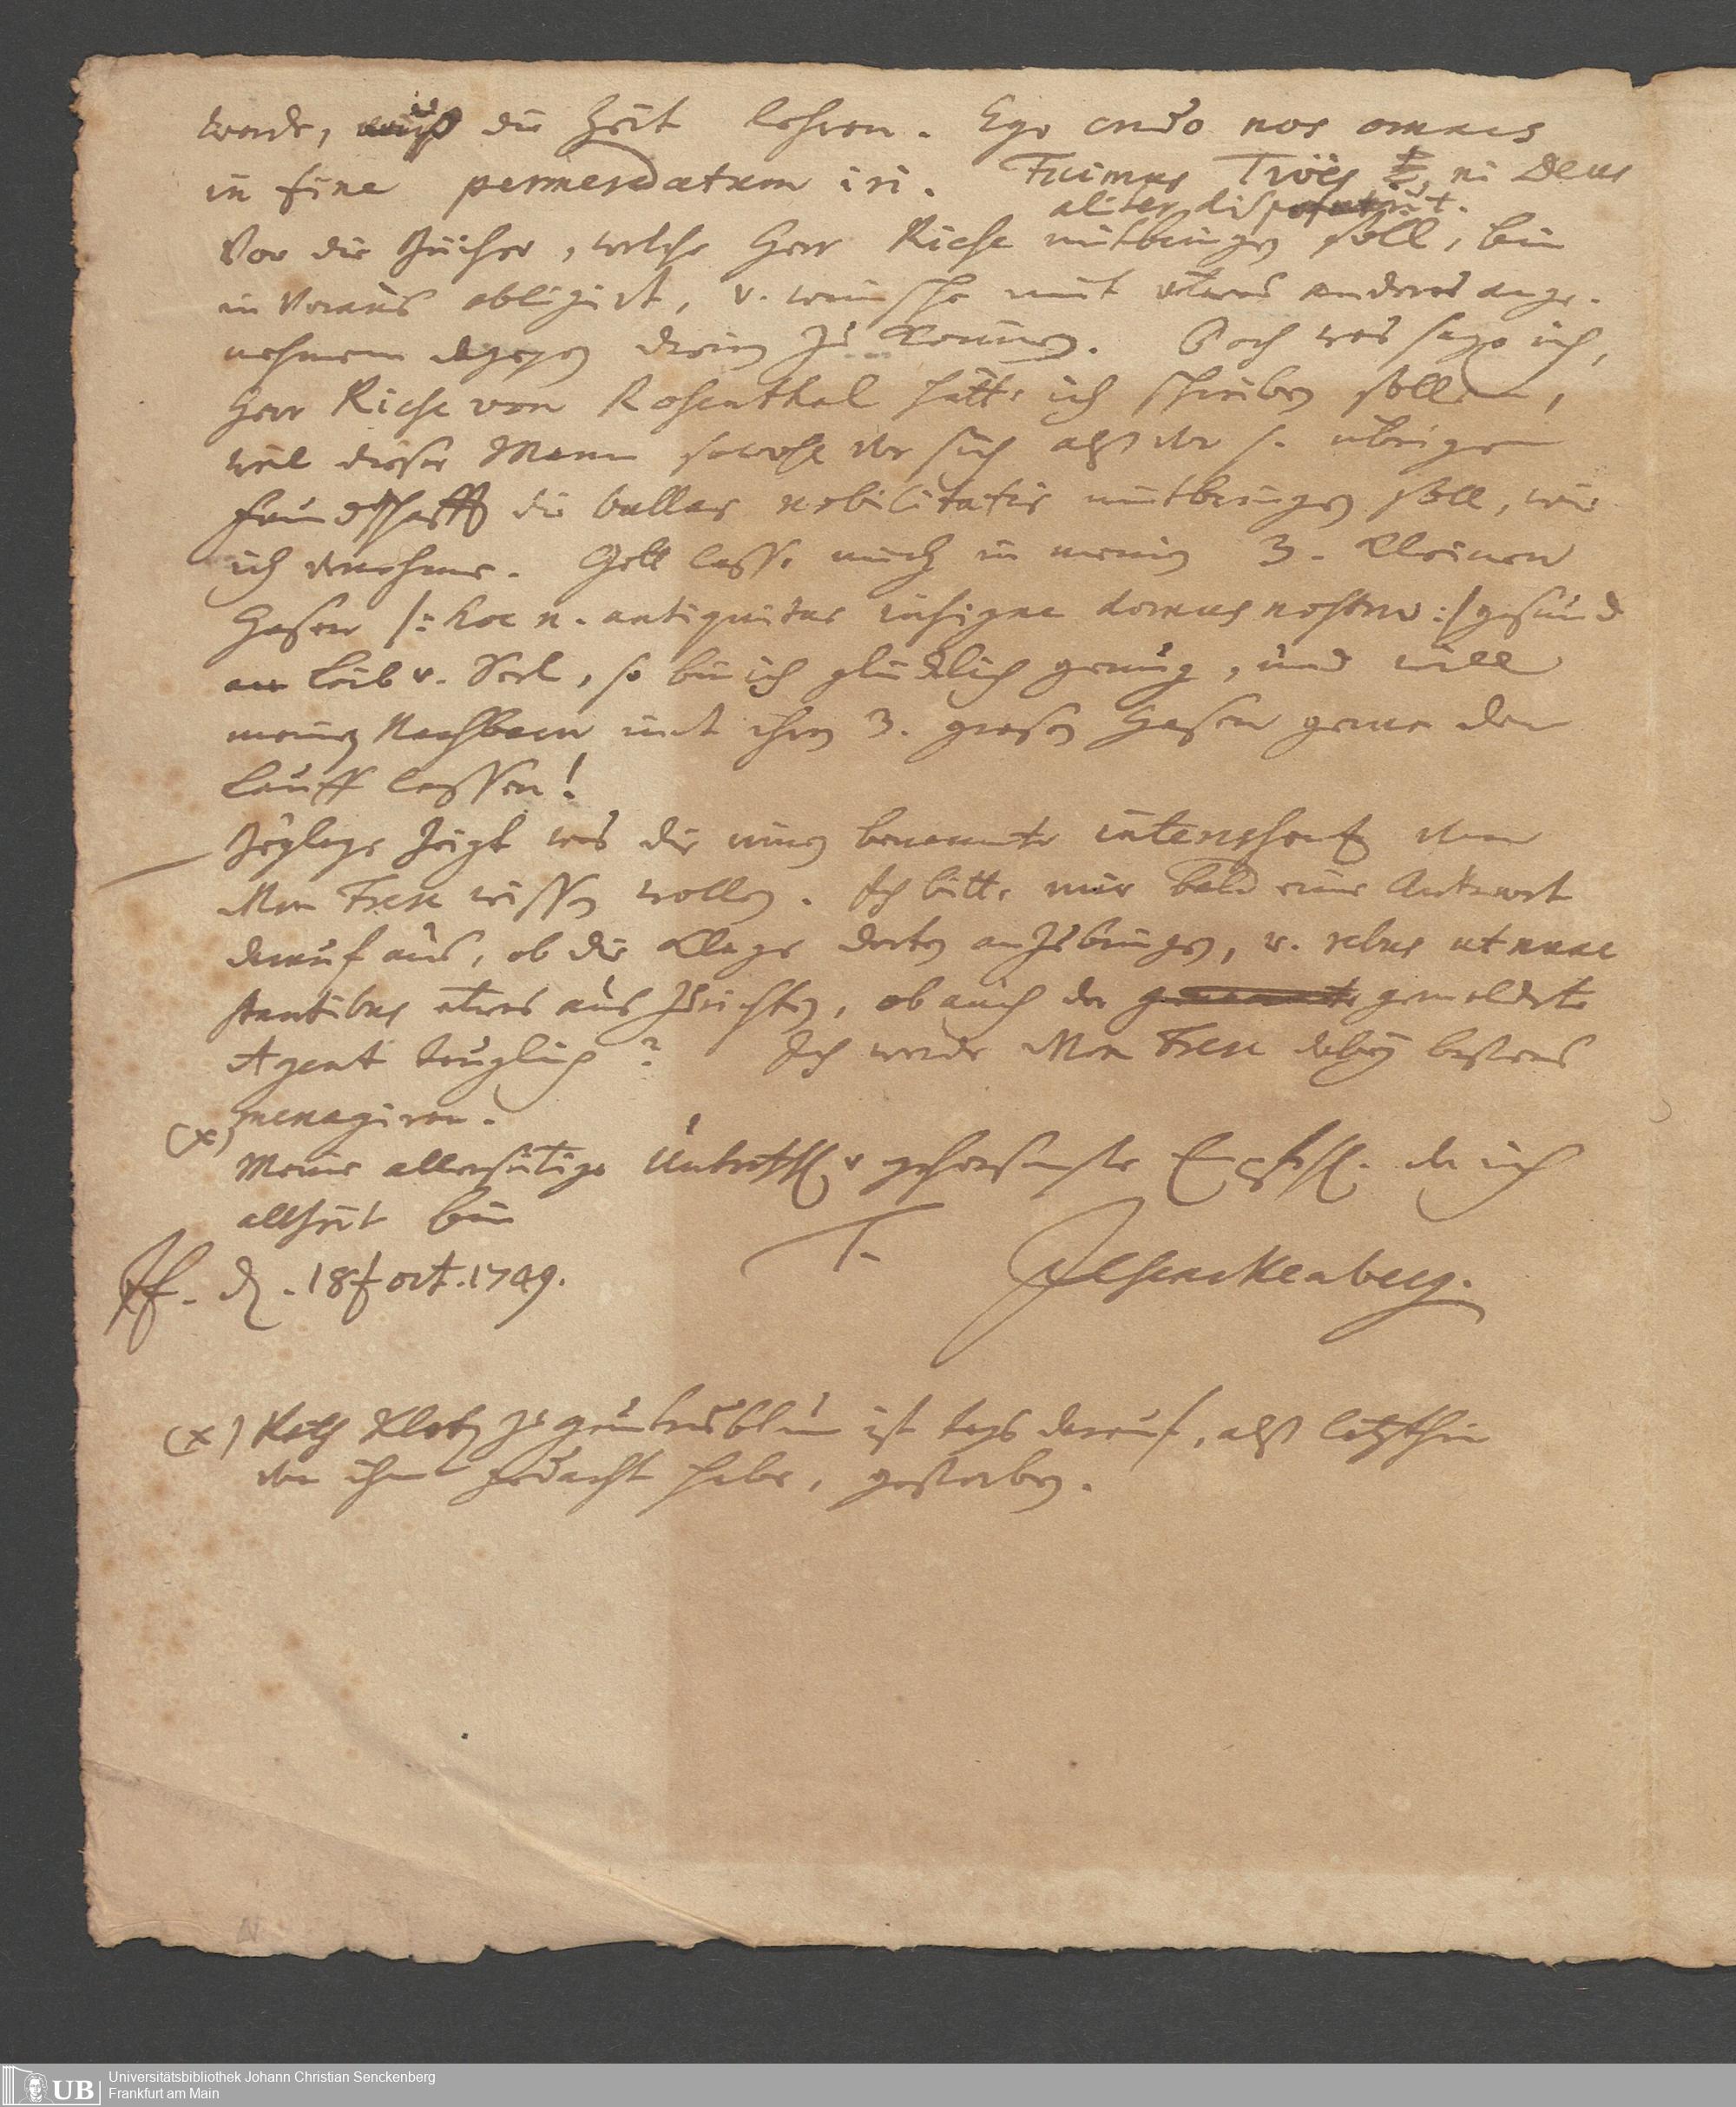 werde, muß die Zeit lehren. Ego credo nos omnes
in fine permerdatum iri. Fuimus Troës &, ni Deus
aliter disposuerit.
Vor die Bücher, welche Herr Riese mitbringen soll, bin
in Voraus obligirt, v. wünsche mit etwas anderes ange-
nehmem dagegen dienen zu können. Doch was sage ich,
Herr Riese von Rosenthal hätte ich schreiben sollen,
weil dieser Mann sowohl vor sich alß vor s. übrigen
Freundschafft die bullas nobilitatis mitbringen soll, wie
ich vernehme. Gott lasse mich in meinen 3. kleinen
Hasen /: hoc n. antiquitus insigne domus nostrae :/ gesund
an Leib v. Seel, so bin ich glücklich genug, und will
meinen Nachbarn mit ihren 3. großen Hasen gerne den
Lauff lassen!
Beylage zeigt was die einen benannte von
Mon Frere wissen wollen. Ich bitte mir bald eine Antwort
darauf aus, ob die Klage dorten anzubringen, v. rebus ut nunc
stantibus etwas auszurichten, ob auch der genannte gemeldete
Agent tauglich? Ich werde Mon Frere dabey bestens
menagiren.
(x)
Meine allerseitige v gehorsamste Empfehl. der ich
allzeit bin
T. Senckenberg.
Ff. d. 18t oct. 1749.
(x) Rath Klotz zu ist tags darauf, alß letzthin
von ihm gedacht habe, gestorben.
UB Universitätsbibliothek Johann Christian Senckenberg
Frankfurt am Main